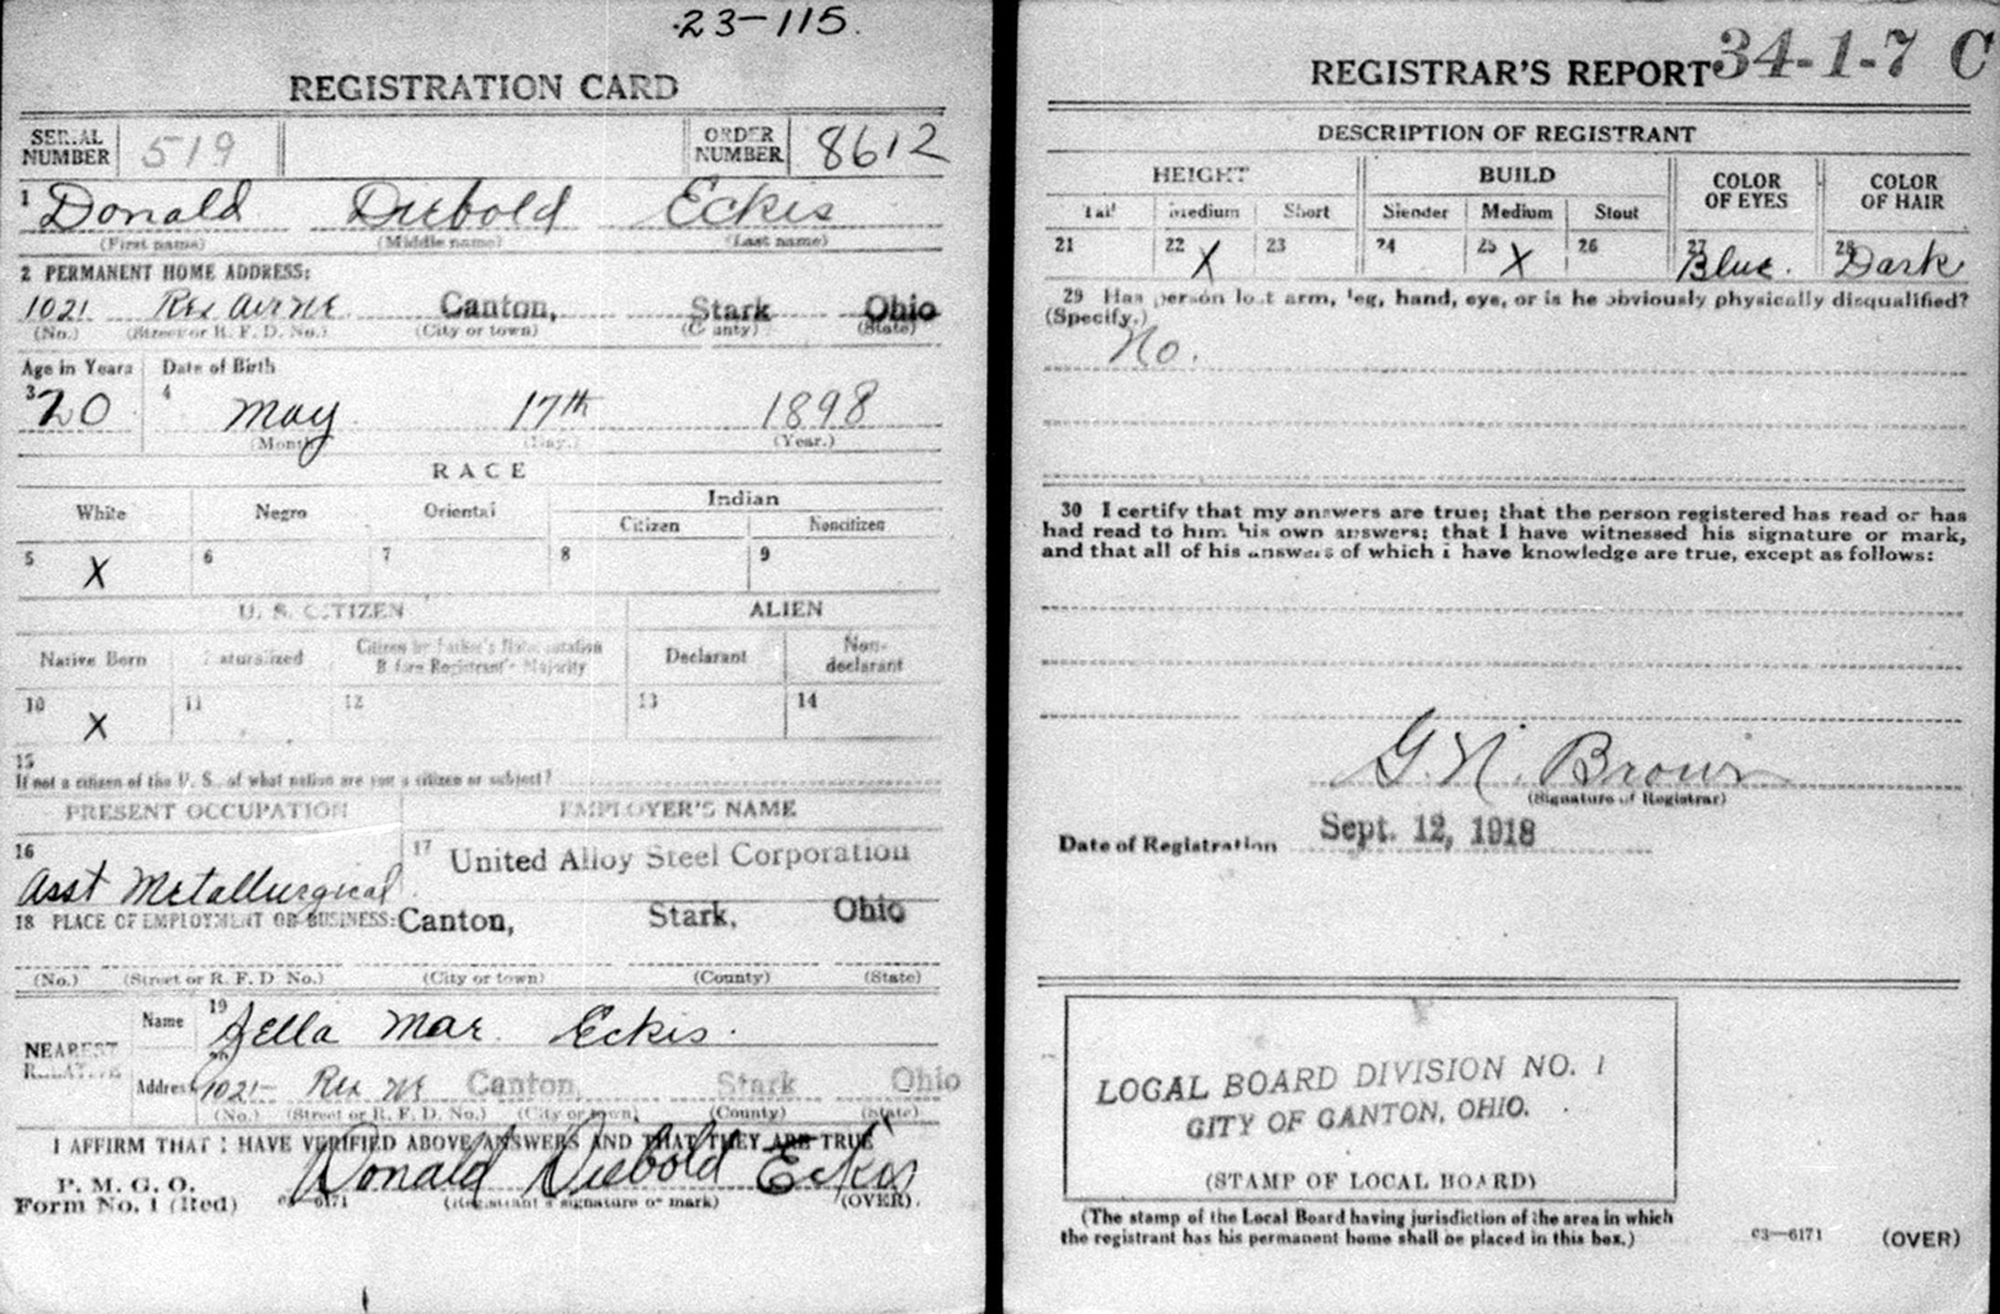 23-115.
REGISTRATION CARD
SERIAL NUMBER 519 ORDER NUMBER 8612
1 Donald Diebold Eckis
(First name) (Middle name) (Last name)
2 PERMANENT HOME ADDRESS:
1021 Rex Ave NE Canton, Stark Ohio
(No.) (Street or R. F. D. No.) (City or town) (County) (State)
Age in Years Date of Birth
3 20 4 May 17th 1898
(Month) (Day.) (Year.)
RACE
White Negro Oriental Indian
Citizen Noncitizen
5 X 6 7 8 9
U. S. CITIZEN ALIEN
Native Born Naturalized Citizen by Father's Naturalization Before Registrant's Majority Declarant Non-declarant
10 X 11 12 13 14
15
If not a citizen of the U. S., of what nation are you a citizen or subject?
PRESENT OCCUPATION EMPLOYER'S NAME
16 Asst Metallurgical 17 United Alloy Steel Corporation
18 PLACE OF EMPLOYMENT OR BUSINESS: Canton, Stark, Ohio
(No.) (Street or R. F. D No.) (City or town) (County) (State)
NEAREST RELATIVE
Name 19 Zella Mae Eckis.
Address 20 1021 Rex NE Canton, Stark Ohio
(No.) (Street or R. F. D. No.) (City or town) (County) (State)
I AFFIRM THAT I HAVE VERIFIED ABOVE ANSWERS AND THAT THEY ARE TRUE
P. M. G. O.
Form No. 1 (Red) 03—6171 Donald Diebold Eckis
(Registrant's signature or mark) (OVER).
REGISTRAR'S REPORT 34-1-7 C
DESCRIPTION OF REGISTRANT
HEIGHT BUILD COLOR OF EYES COLOR OF HAIR
Tall Medium Short Slender Medium Stout
21 22 X 23 24 25 X 26 27 Blue. 28 Dark
29 Has person lost arm, leg, hand, eye, or is he obviously physically disqualified?
(Specify.)
No.
30 I certify that my answers are true; that the person registered has read or has
had read to him his own answers; that I have witnessed his signature or mark,
and that all of his answers of which I have knowledge are true, except as follows:
G. N. Brown
(Signature of Registrar)
Date of Registration Sept. 12, 1918
LOCAL BOARD DIVISION NO. 1
CITY OF CANTON, OHIO.
(STAMP OF LOCAL BOARD)
(The stamp of the Local Board having jurisdiction of the area in which
the registrant has his permanent home shall be placed in this box.)
03—6171 (OVER)